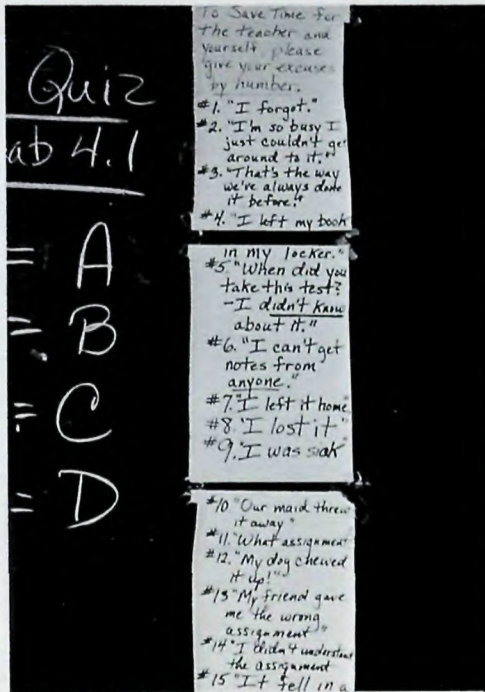 Quiz
ab 4.1
= A
= B
= C
= D
To Save Time for
the teacher and
yourself please
give your excuses
by number.
#1. "I forgot."
#2. "I'm so busy I
just couldn't get
around to it."
#3. "That's the way
we've always done
it before."
#4. "I left my book
in my locker."
#5. "When did you
take this test?
-I didn't know
about it."
#6. "I can't get
notes from
anyone."
#7. "I left it home
#8. "I lost it"
#9. "I was sick"
#10 "Our maid threw
it away"
#11. "What assignment
#12. "My dog chewed
it up!"
#13 "My friend gave
me the wrong
assignment"
#14 "I didn't understand
the assignment
#15 "It fell in a